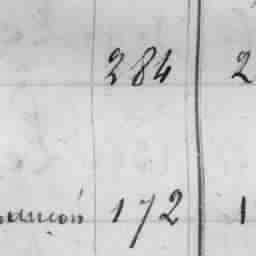 284 2
172 1